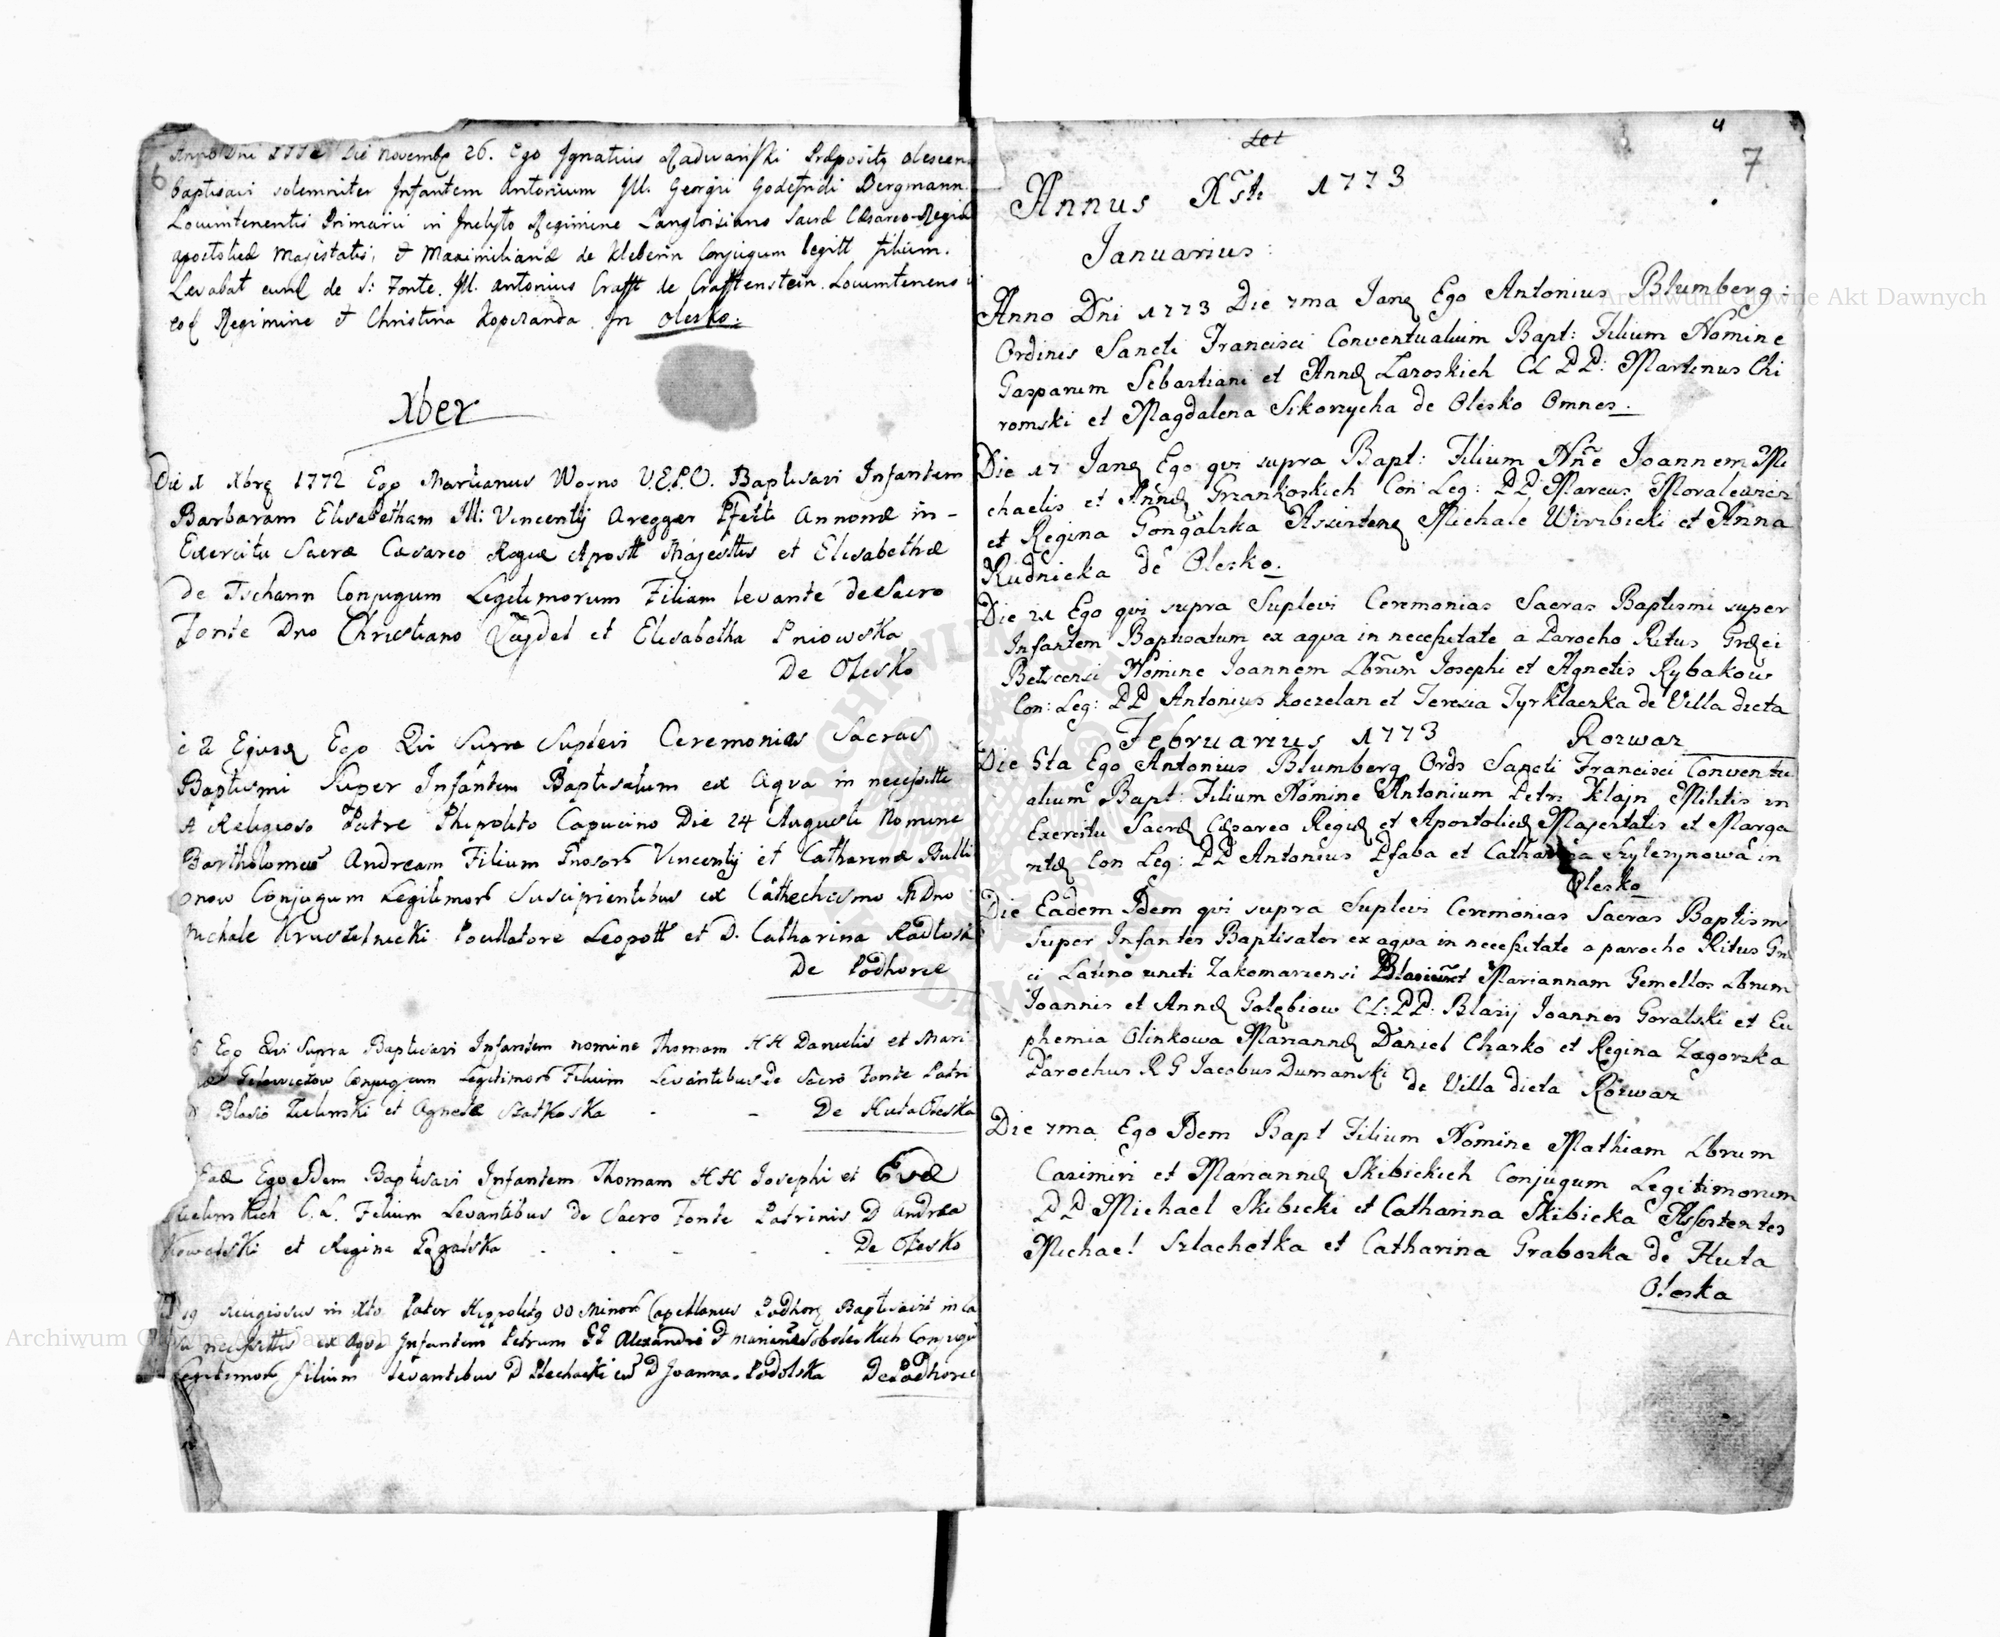 6
Anno Dni 1772 Die Novembr 26. Ego Ignatius Radwański Præposity Olescen
baptisavi solemniter Infantem Antonium Ill. Georgii Godefridi Bergmann.
Locumtenentis Primarii in Inclyto Regimine Langloisiano Sacræ Cæsareo-Regiæ
apostolicæ Majestatis, et Maximilianæ de Kleberin Conjugum legitt filium.
Levabat eund de S: Fonte. Ill. Antonius Crafft de Crafftenstein. Locumtenens
Regimine et Christina Koperanda In Olesko.
Xber
Die 1 Xbrę 1772 Ego Martianus Woyno V.E.P.O. Baptisavi Infantem
Barbaram Elisabetham Ill: Vincentij Aregger Pfetti Annonæ in-
Exercitu Sacræ Cæsareo Regiæ Apostt Majesttis et Elisabethæ
de Tschann Conjugum Legitimorum Filiam levante de Sacro
Fonte Dno Christiano Laydel et Elisabetha Pniowska
De Olesko
2 Ejusdę Ego Qvi Supra Suplevi Ceremonias Sacras
Baptismi Super Infantem Baptisatum ex Aqva in necessitte
A Religioso Patre Phipolito Capucino Die 24 Augusti Nomine
Bartholomeũ Andream Filium Gñosorũ Vincentij et Catharinæ Bulli
onow Conjugum Legitimorũ Suscipientibus ex Cathechismo M Dno
Michale Kruszelnicki Pocillatore Leopolt et D. Catharina Radlosk
De Podhorce
6 Ego Qvi Supra Baptisavi Infantem nomine Thomam HH Danielis et Mari
Conjugum Legitimorũ Filium Levantibus de Sacro Fonte Patri
Blasio Zielinski et Agnete Szatkoska - - De Huta Oleska
Eadē Ego Idem Baptisavi Infantem Thomam HH Josephi et Evæ
Zielinskich C. L. Filium Levantibus de Sacro Fonte Patrinis D Andrea
Kowalski et Regina - - - De Olesko
D 19 Religiosus in Xto Pater Hippolitę OO Minorũ Capellanus Podhorę Baptisavit in ca
su necessittis ex Aqva Infantem Petrum GG Alexandri et Mariannæ Soboleskich Conjugũ
Legitimorũ filium levantibus D Plechacki et D Joanna Podolska De Podhorce
4
7
Annus Xsti 1773
Januarius:
Anno Dni 1773 Die 7ma Janę Ego Antonius Blumberg:
Ordinis Sancti Francisci Conventualium Bapt: Filium Nomine
Gasparum Sebastiani et Annę Laroskich CL PP: Martinus Chi
romski et Magdalena Sikorzycha de Olesko Omnes.
Die 17 Janę Ego qvi supra Bapt: Filium Nñe Joannem Mi
chaelis et Annę Grzankoskich Con: Leg: PP Marcus Moralewicz
et Regina Gongalska Assistenę Michale Wirzbicki et Anna
Rudnicka de Olesko.
Die 21 Ego qvi supra Suplevi Ceremonias Sacras Baptismi super
Infantem Baptisatum ex aqva in necessitate a Parocho Ritus Græci
Betscensi Nomine Joannem Lbrum Josephi et Agnetis Rybakow
Con: Leg: PP Antonius Koczelan et Teresia Tyrklaczka de Villa dicta
Februarius 1773 Rozwaz
Die 5ta Ego Antonius Blumberg Ords Sancti Francisci Conventu
alium Bapt: Filium Nomine Antonium Petri Klajn Militis in
Exercitu Sacrę Cæsareo Regię et Apostolicę Majestatis et Marga
ritę Con Leg: PP Antonius Pfaba et Catharina Szylerynowa in
Olesko
Die Eadem Idem qvi supra Suplevi Ceremonias Sacras Baptismi
Super Infantes Baptisatos ex aqva in necessitate a parocho Ritus Græ
ci Latino uniti Zakomarzensi Blasium et Mariannam Gemellos Lbrum
Joannis et Annę Gołębiow CL: PP: Blasij Joannes Goralski et Eu
phemia Olinkowa Mariannę Daniel Charko et Regina Zagorska
Parochus R G Jacobus Dumanski de Villa dicta Rozwaz
Die 7ma Ego Idem Bapt Filium Nomine Mathiam Lbrum
Casimiri et Mariannę Skibickich Conjugum Legitimorum
PP Michael Skibicki et Catharina Skibicka Assistentes
Michael Szlachetka et Catharina Graboska de Huta
Oleska
Archiwum Główne Akt Dawnych
Archiwum Główne Akt Dawnych